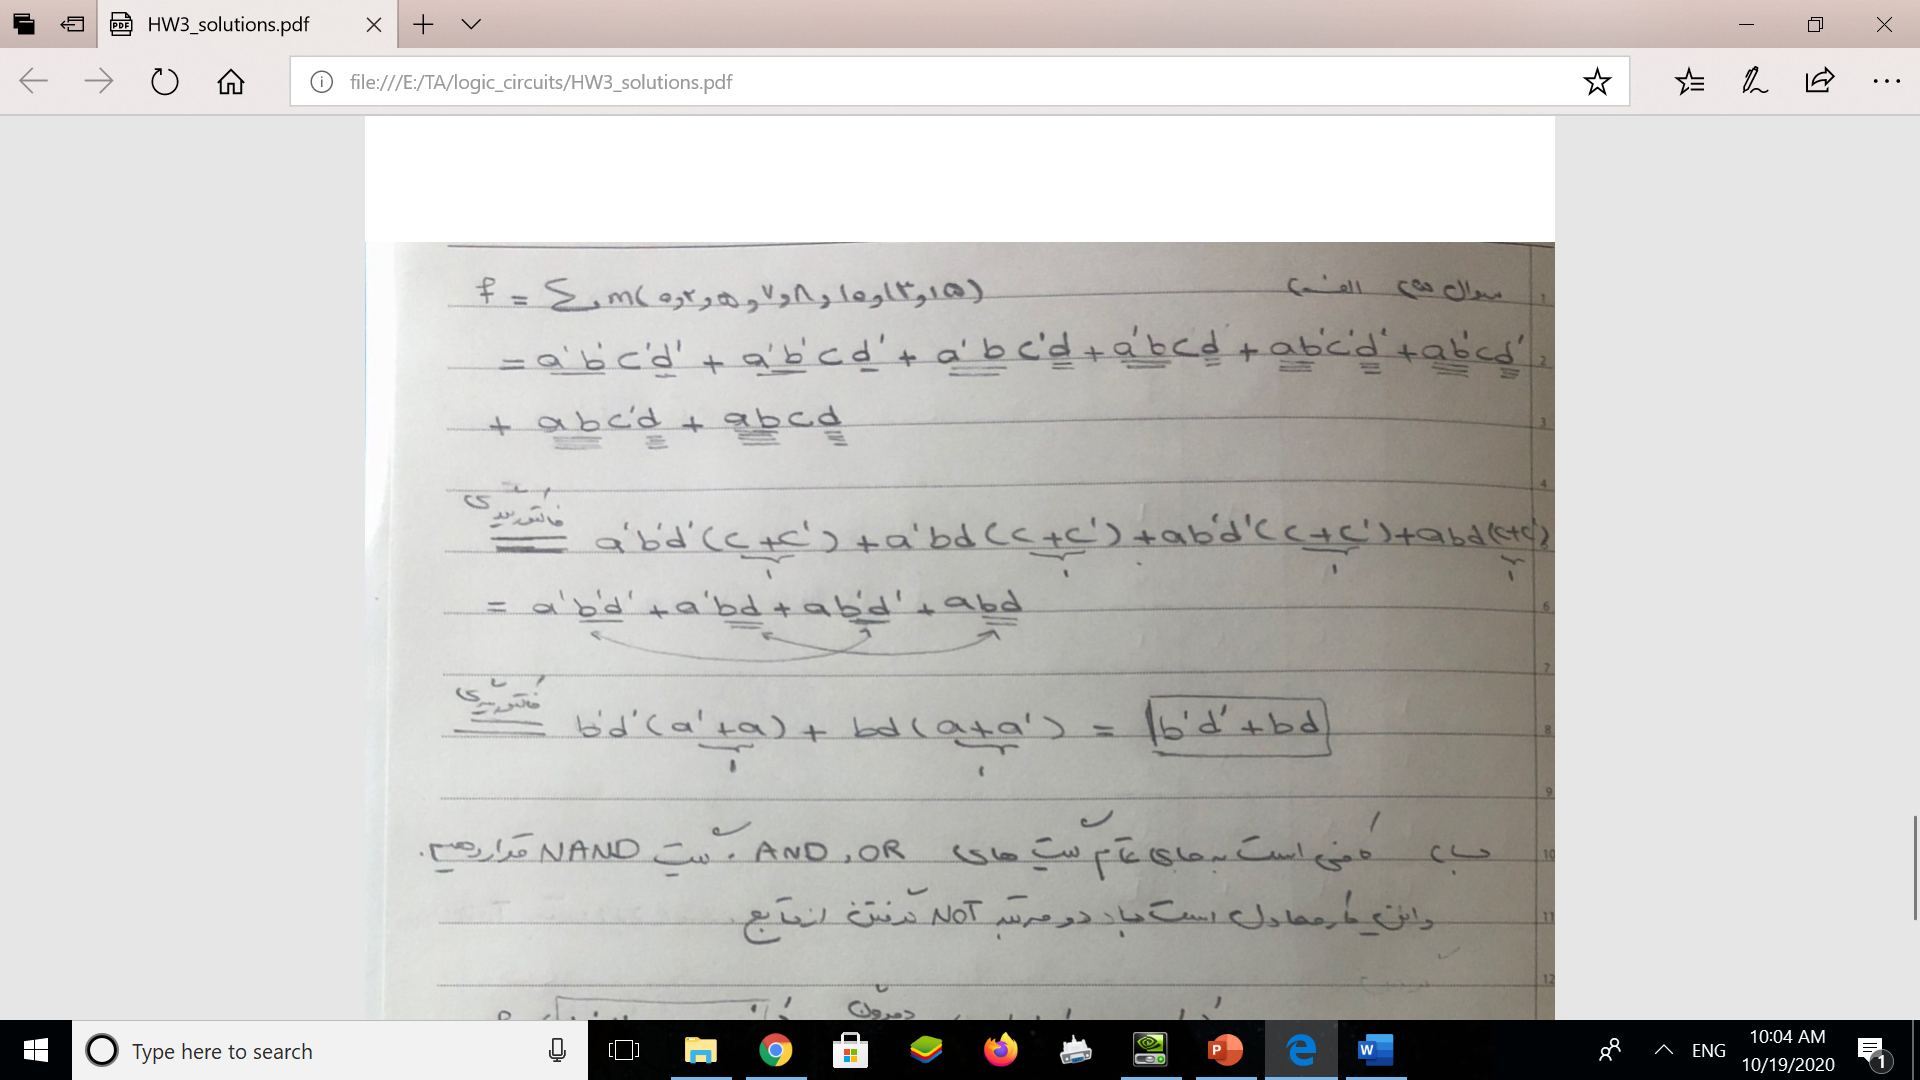 HW3_solutions.pdf
file:///E:/TA/logic_circuits/HW3_solutions.pdf
سوال الف)
f = Σ m(۰,۲,۵,۷,۸,۱۰,۱۳,۱۵)
= a'b'c'd' + a'b'cd' + a'bc'd + a'bcd + ab'c'd' + ab'cd'
+ abc'd + abcd
فاکتورگیری
a'b'd'(c+c') + a'bd(c+c') + ab'd'(c+c') + abd(c+c')
۱ ۱ ۱ ۱
= a'b'd' + a'bd + ab'd' + abd
فاکتورگیری
b'd'(a'+a) + bd(a+a') = b'd' + bd
۱ ۱
ب) کافی است به جای تمام گیت های AND, OR گیت NAND قرار دهیم.
واین کار معادل است با دو مرتبه NOT گرفتن از تابع
1
2
3
4
6
7
8
9
10
11
12
Type here to search
ENG
10:04 AM
10/19/2020
1